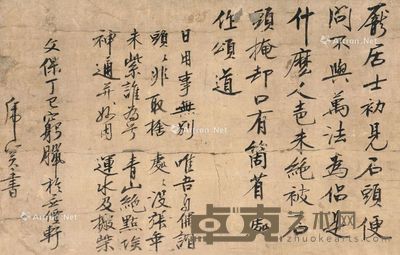 龐居士初見石頭便
問不與萬法為侶是
什麼人未絕被石
頭掩却口有箇省處
頌道
日用事無別 唯吾自偶諧
頭〻非取捨 處〻没張乖
朱紫誰為号 青山絕點埃
神通并妙用 運水及搬柴
文保丁巳窮臘於軒
書
Artron.Net
卓克艺术网
zhuokearts.com